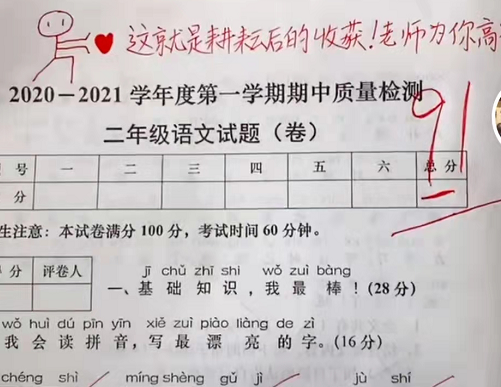 这就是耕耘后的收获！老师为你高
2020－2021 学年度第一学期期中质量检测
二年级语文试题（卷）
91
号 一 二 三 四 五 六 总分
分
生注意：本试卷满分 100 分，考试时间 60 分钟。
分 评卷人
jī chǔ zhī shi wǒ zuì bàng
一、基 础 知 识，我 最 棒！(28 分)
wǒ huì dú pīn yīn xiě zuì piào liàng de zì
我 会 读 拼 音，写 最 漂 亮 的 字。(16 分)
chéng shì míng shèng gǔ jì jù shí